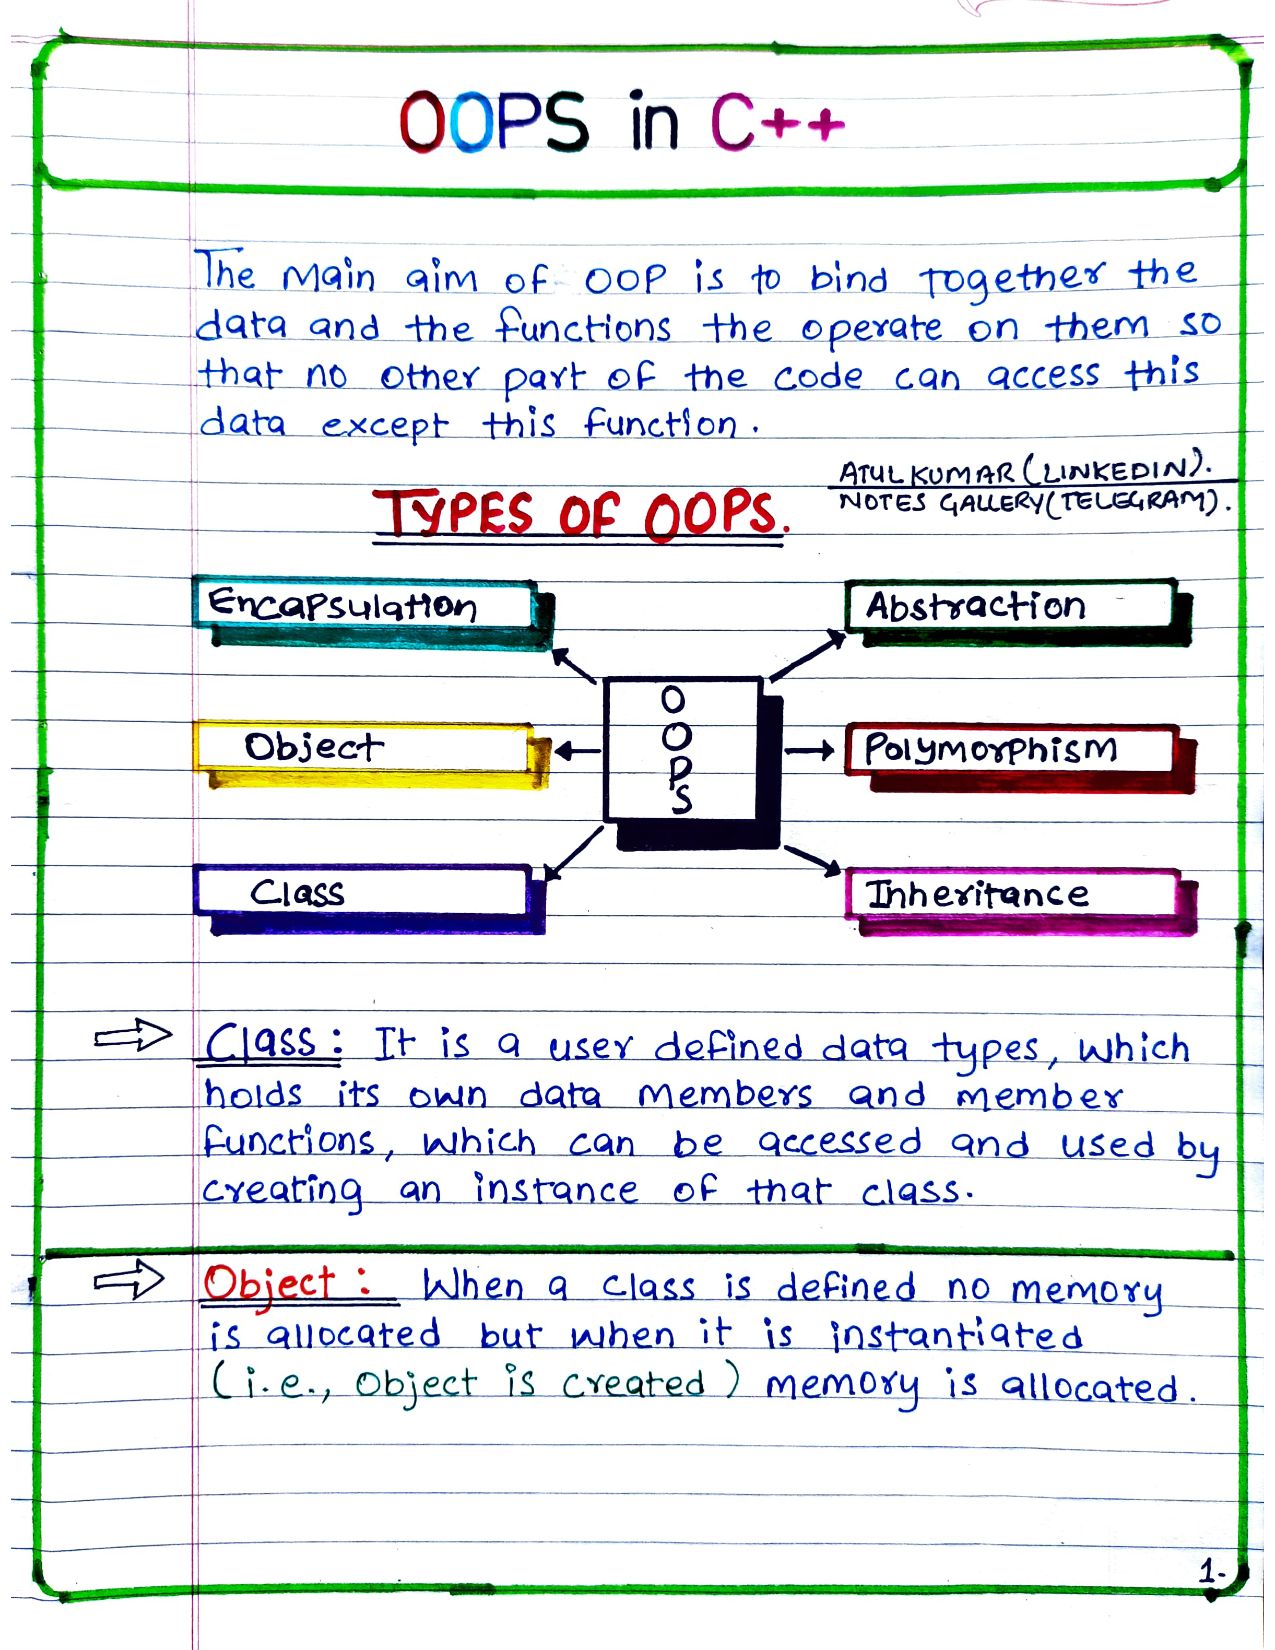 OOPS in C++
The Main aim of OOP is to bind together the
data and the functions the operate on them so
that no other part of the code can access this
data except this function.
ATUL KUMAR (LINKEDIN).
NOTES GALLERY(TELEGRAM).
TYPES OF OOPS.
Encapsulation
Abstraction
OOPS
Object
Polymorphism
Class
Inheritance
Class: It is a user defined data types, which
holds its own data members and member
functions, which can be accessed and used by
creating an instance of that class.
Object: When a class is defined no memory
is allocated but when it is instantiated
(i.e., object is created) memory is allocated.
1.